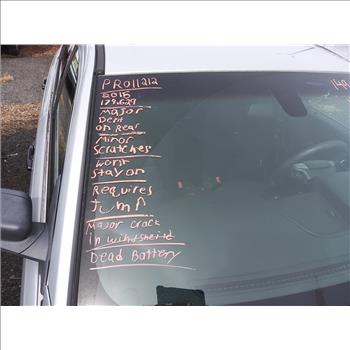 PRO11212
2015
179,629
Major
Dent
on Rear
Minor
Scratches
Wont
stay on
Requires
Jump
Major crack
in windsheild
Dead Battery